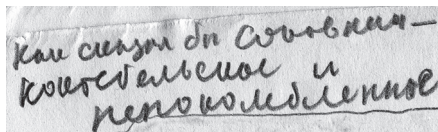 Как сказал бы Соловкин —
коктебельское и
непоколебленное